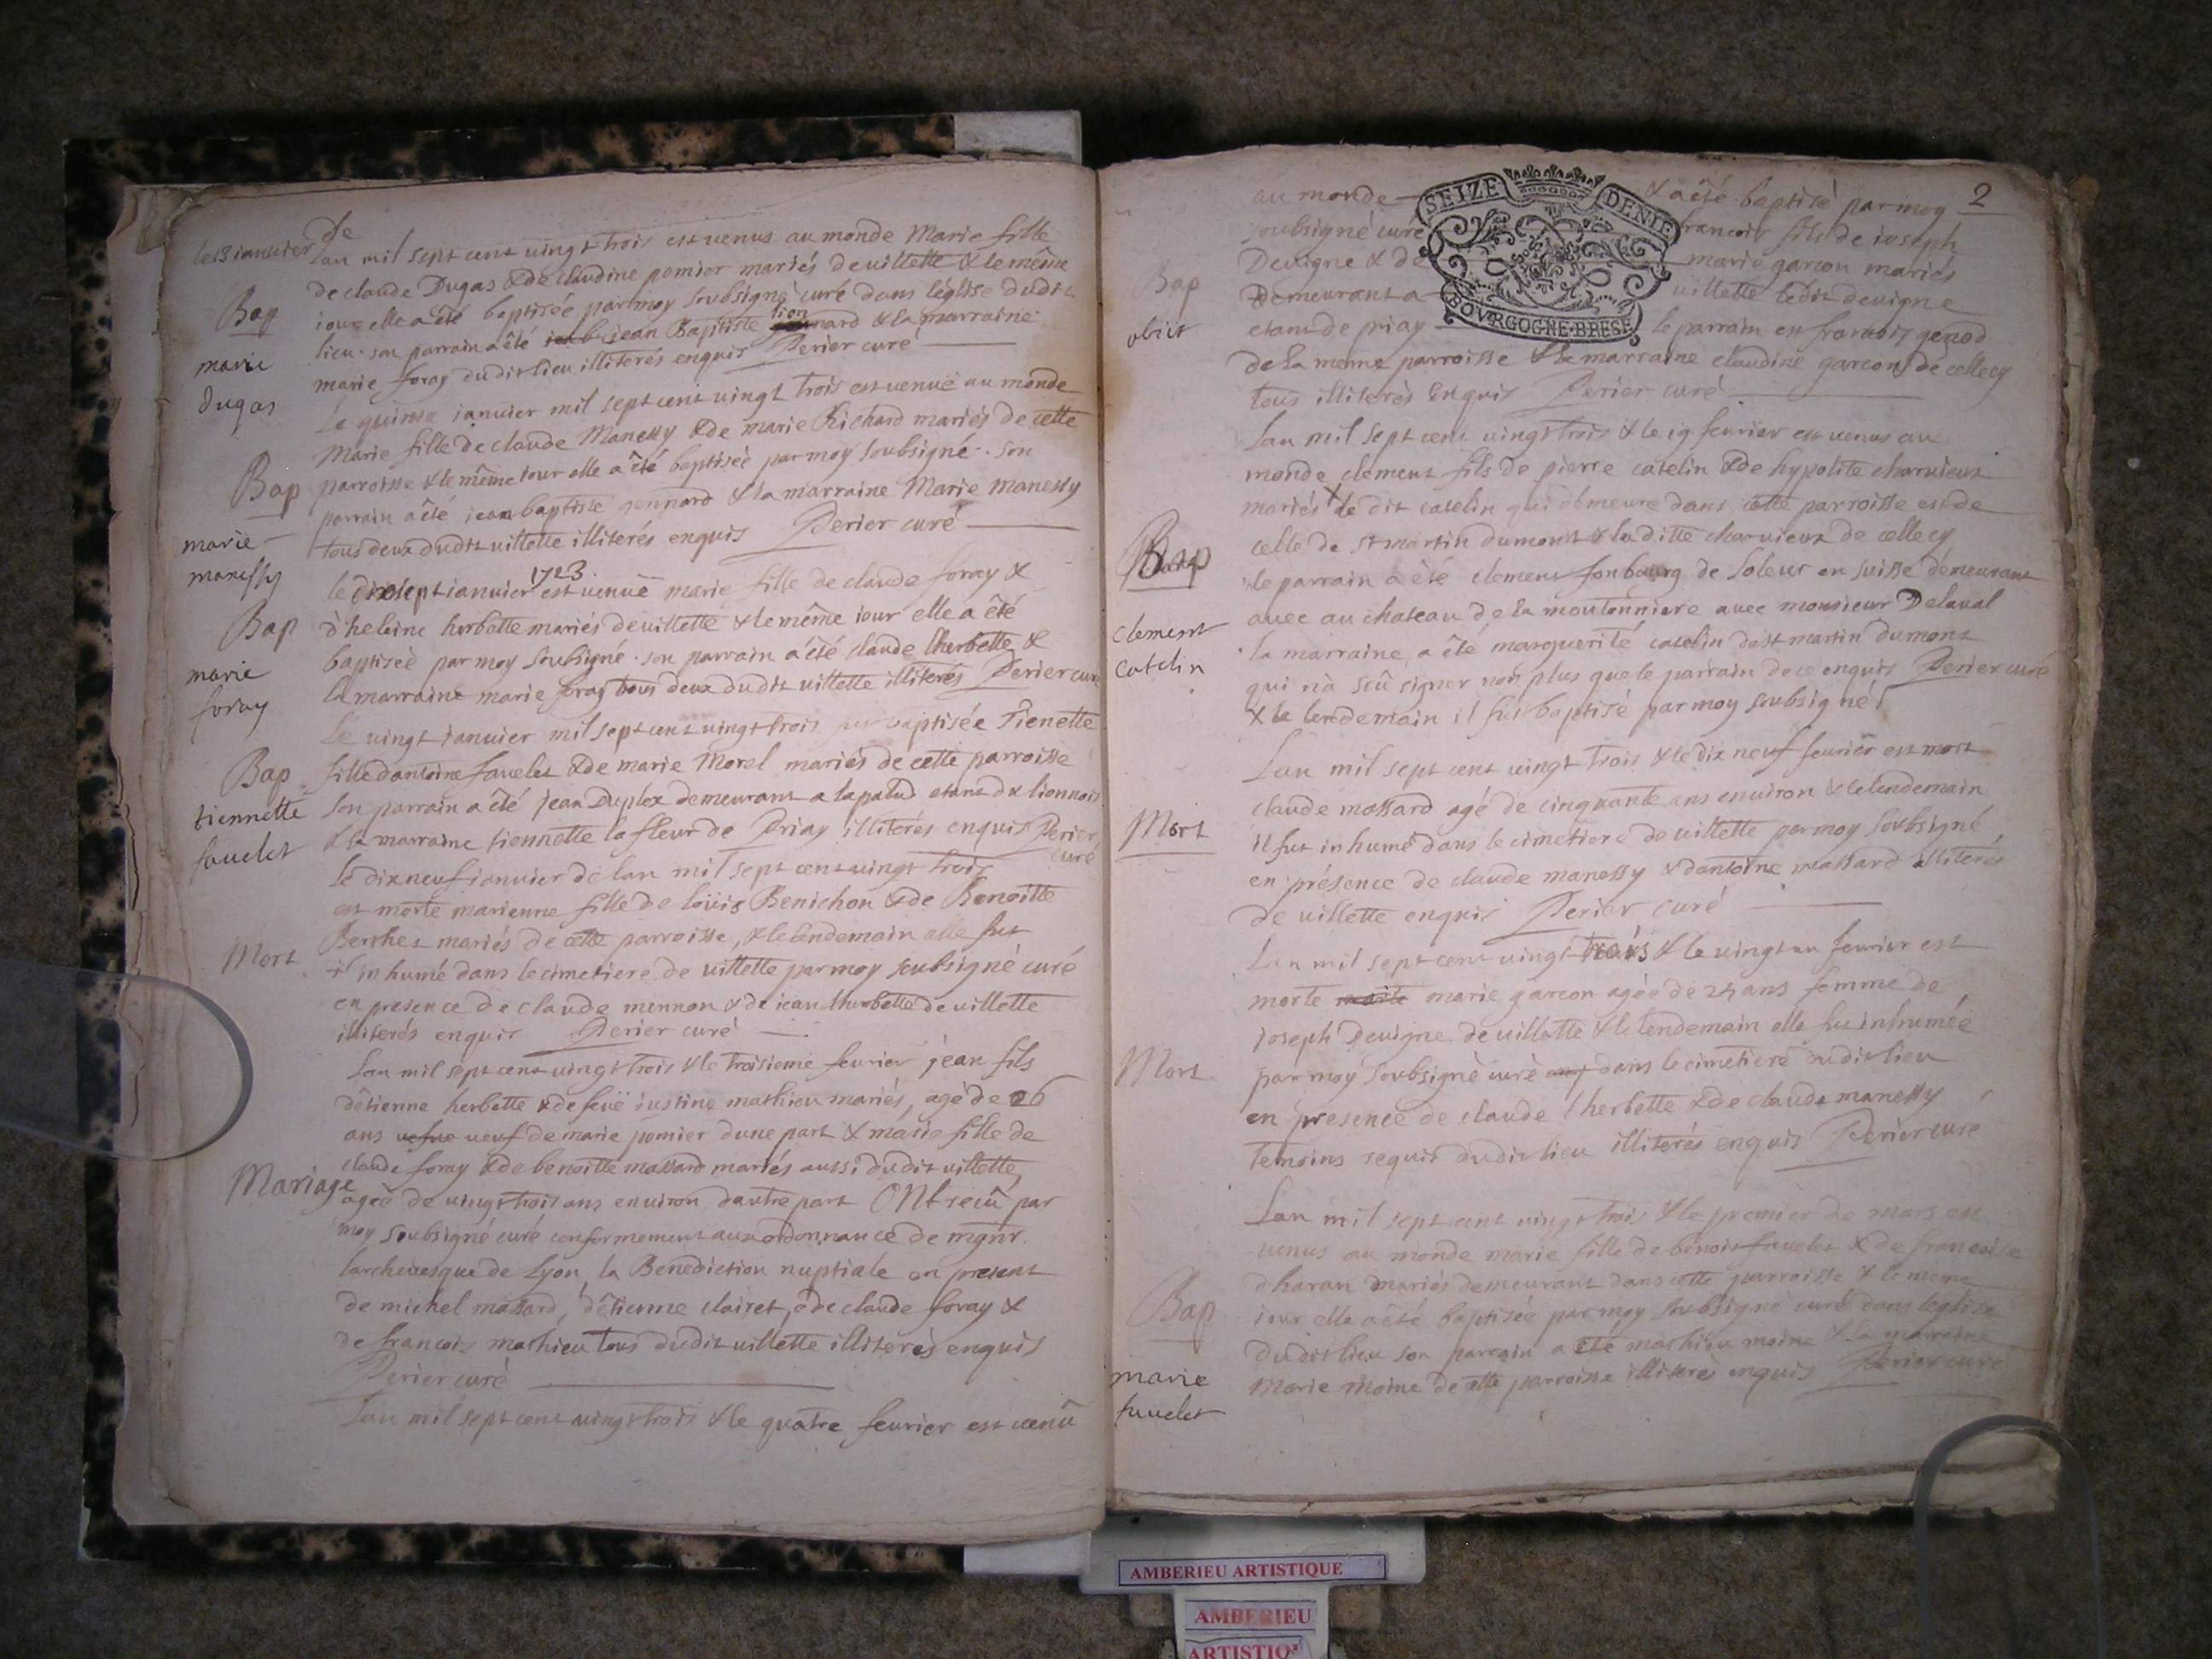 le 13 ianuier de
lan mil sept cent uingt trois est uenus au monde Marie fille
de claude Dugas & de claudine pomier mariés de uillette & le même
Bap
iour elle a été baptisée par moy soubsigné curé dans léglise dudit
lieu. son parrain a été jean Baptiste & la marraine
marie
marie foray dudit lieu illiterés enquis Perier curé
dugas
Le quinse ianuier mil sept cent uingt trois est uenuë au monde
Marie fille de claude Manessy & de marie Richard mariés de cette
Bap
parroisse & le même iour elle a êté baptisée par moy soubsigné. son
parrain a été iean baptiste gennard & la marraine Marie manessy
marie
tous deux dudit uillette illiterés enquis Perier curé
manessy
le dixsept ianuier 1723. est uenuë marie fille de claude foray &
Bap
d'heleine herbette mariés de uillette & le même iour elle a été
baptiseè par moy soubsigné. son parrain a été claude lherbette &
marie
la marraine marie foray tous deux dudit uillette illiterés Perier cure
foray
Le uingt ianuier mil sept cent uingt trois baptisée Tienette
Bap
fille dantoine fauelet & de marie Morel mariés de cette parroisse
tiennette
son parrain a été jean Duplex demeurant a lapalud etant du lionnois
fauelet
& la marraine tiennette lafleur de Priay illiterés enquis Perier
curé
Le dixneuf ianuier de lan mil sept cent uingt trois
est morte marienne fille de loüis Benichon & de Benoitte
Mort
Berthet mariés de cette parroisse, & le lendemain elle fut
inhumé dans le cimetiere de uillette par moy soubsigné curé
en presence de claude mennon & de iean lherbette de uillette
illiterés enquis Perier curé
Lan mil sept cent uingt trois & le troisieme feurier jean fils
dêtienne herbette & de feuë iustine mathieu mariés, agé de 26
ans uefue ueuf de marie pomier dune part & marie fille de
claude foray & de benoitte massard mariés aussi dudit uillette,
Mariage
ageè de uingt trois ans enuiron dautre part ONt reçû par
moy soubsigné curé conformement aux ordonnance de mgnr.
larcheuesque de Lyon, la Benediction nuptiale en present
de michel massard, d'êtienne clairet, & de claude foray &
de francois mathieu tous dudit uillette illiterés enquis
Perier curé
Lan mil sept cent uingt trois & le quatre feurier est uenû
2
au monde & a êté baptisé par moy
soubsigné curé francois fils de ioseph
Deuigne & de marie garcon mariés
Bap
demeurant a uillette ledit deuigne
obiit
etant de priay le parrain est francois genod
de la meme parroisse & la marraine claudine garcon de cellecy
tous illiterés Enquis Perier curé
SEIZE DENIE
BOVRGOGNE·BRESE
Lan mil sept cent uingt trois & le 19 feurier est uenus au
monde clement fils de pierre catelin & de hypolite charuieux
mariés le dit catelin qui demeure dans cette parroisse est de
Bap
celle de st martin dumont & la ditte charuieux de cellecy
le parrain a été clement fonbourg de Soleur en suisse demeurant
clement
auec au chateau de la moutonniere auec monsieur Delaual
catelin
la marraine a êté marguerite catelin de st martin dumont
qui nà sçû signer non plus que le parrain de ce enquis Perier curé
& le lendemain il fut baptisé par moy soubsigné
Lan mil sept cent uingt trois & le dix neuf feurier est mort
claude massard agé de cinquante ans enuiron & le lendemain
Mort
il fut inhumé dans le cimetiere de uillette par moy soubsigné
en présence de claude manessy & dantoine massard illiterés
de uillette enquis Perier curé
Lan mil sept cent uingt trois & le uingt un feurier est
morte marie garcon agée de 25 ans femme de
joseph Deuigne de uillette & le lendemain elle fut inhumée
Mort
par moy soubsigné curé dans le cimetiere dudit lieu
en presence de claude lherbette & de claude manessy
temoins requis dudit lieu illiterés enquis Perier curé
Lan mil sept cent uingt trois & le premier de mars est
uenus au monde marie fille de benoit fauelet & de francoise
dharan mariés demeurant dans cette parroisse & le meme
Bap
iour elle a été baptisée par moy soubsigné curé dans leglise
dudit lieu son parrain a été mathieu moine & la marraine
marie
Marie moine de cette parroisse illiterés enquis Perier curé
fauelet
AMBERIEU ARTISTIQUE
AMBERIEU
ARTISTIQ